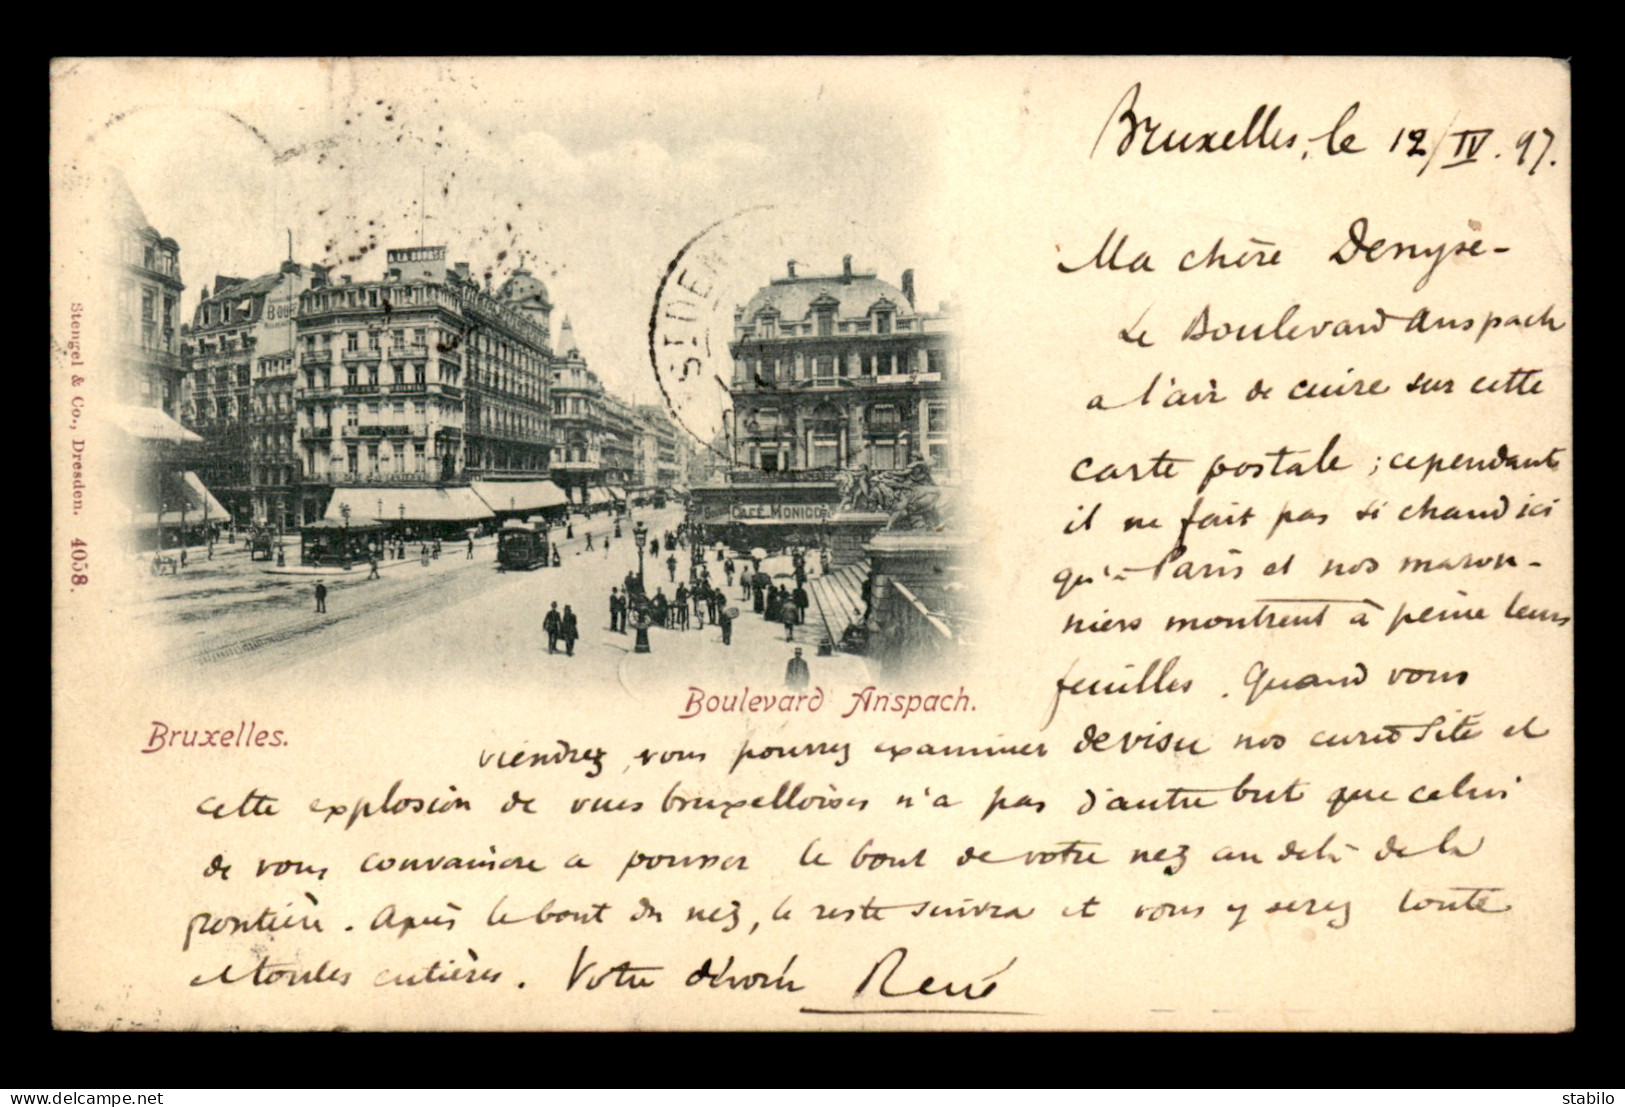 Bruxelles, le 12/IV.97.
Ma chère Denyse-
Le Boulevard Anspach
a l'air de cuire sur cette
carte postale ; cependant
il ne fait pas si chaud ici
qu'à Paris et nos maron-
niers montrent à peine leurs
feuilles. Quand vous
viendrez, vous pourrez examiner de visu nos curiosité et
cette explosion de vues bruxelloises n'a pas d'autre but que celui
de vous convaincre a pousser le bout de votre nez au delà de la
frontière. Après le bout du nez, le reste suivra et vous y serez toute
et toutes entières. Votre dévoué René
Boulevard Anspach.
Bruxelles.
Stengel & Co., Dresden. 4058.
A LA BOURSE
CAFÉ MONICO
ST DENI
delcampe.net
stabilo